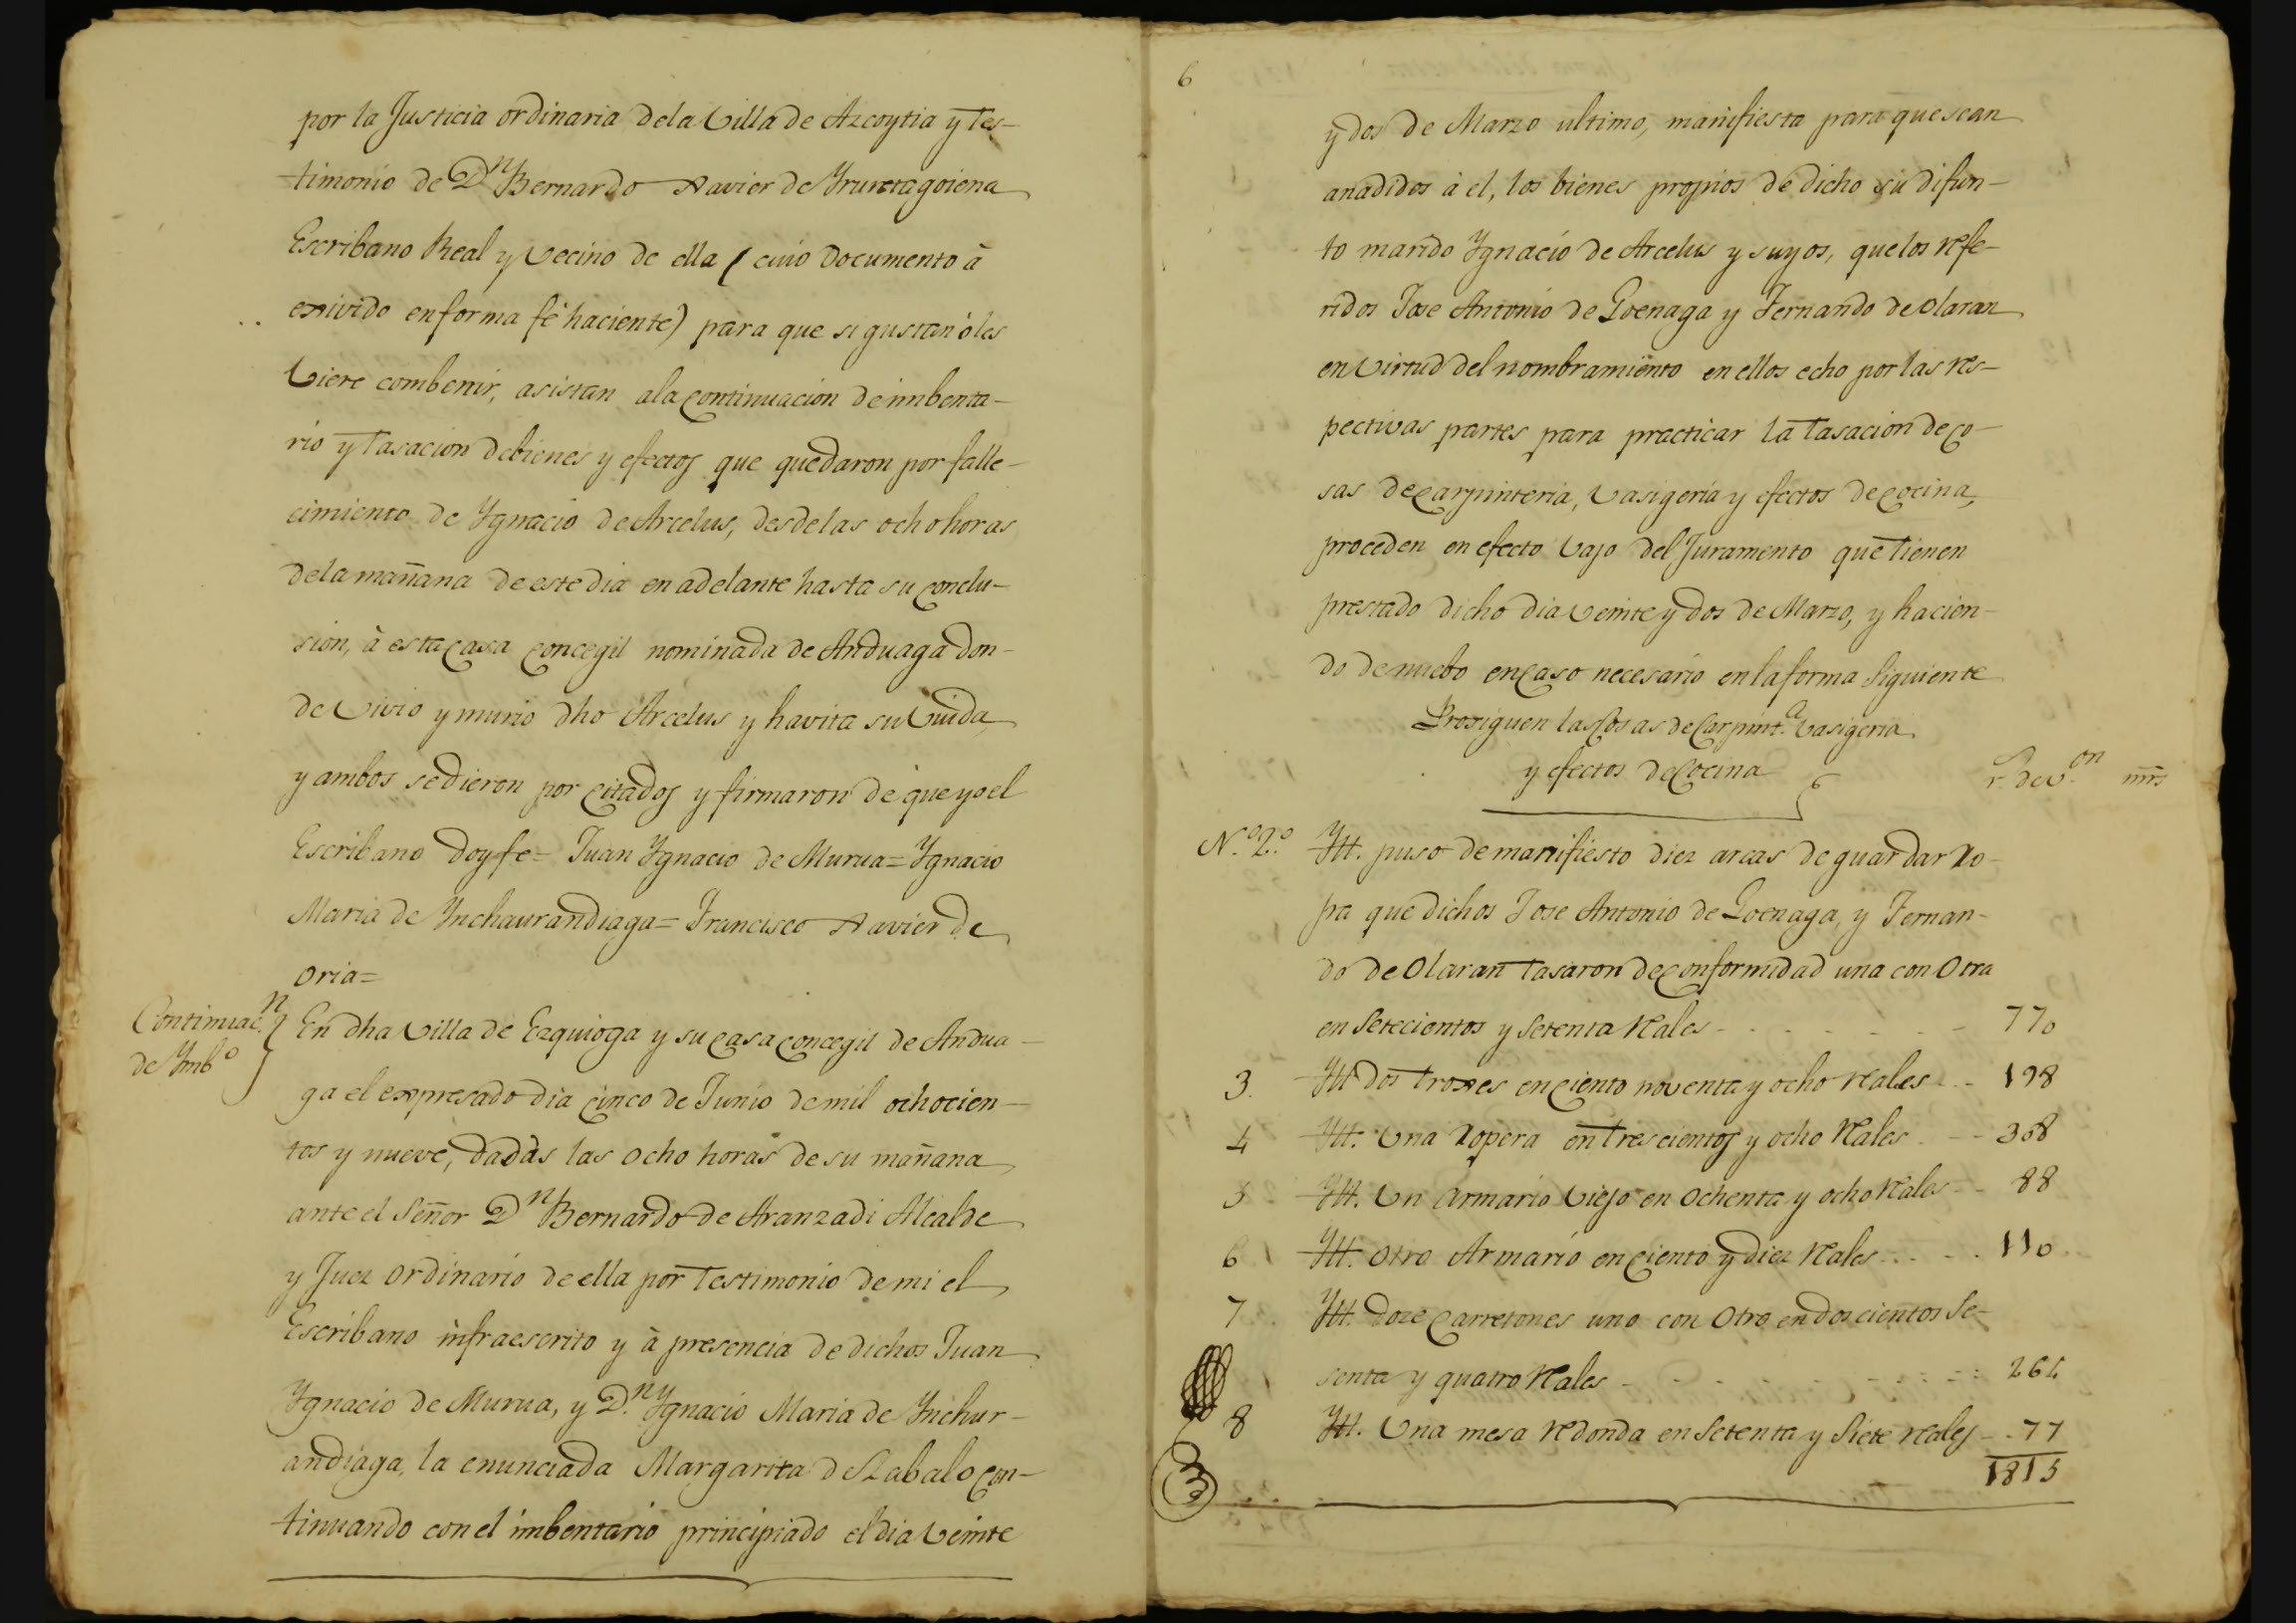 por la Justicia ordinaria dela Villa de Azcoytia y Tes-
timonio de Dn Bernardo Xavier de Yruretagoiena
Escribano Real y Vecino de ella (cuio documento à
exivido en forma fè haciente) para que si gustan ò les
Viere combenir, asistan ala continuacion de imbenta-
rio y Tasacion de bienes y efectos que quedaron por falle-
cimiento de Ygnacio de Arcelus, desde las ocho horas
dela mañana de este dia en adelante hasta su conclu-
sion, à esta casa concegil nominada de Anduaga don-
de Vivio y murio dho Arcelus y havita su Viuda,
y ambos se dieron por citados y firmaron de que yo el
Escribano doy fe= Juan Ygnacio de Murua= Ygnacio
Maria de Ynchaurandiaga= Francisco Xavier de
Oria=
Continuac.n
de Ymb.o
En dha Villa de Ezquioga y su casa concegil de Andua-
ga el expresado dia cinco de Junio de mil ochocien-
tos y nueve, dadas las ocho horas de su mañana
ante el Señor Dn Bernardo de Aranzadi Alcalde
y Juez ordinario de ella por Testimonio de mi el
Escribano infraescrito y à presencia de dichos Juan
Ygnacio de Murua, y D.n Ygnacio Maria de Ynchur-
andiaga, la enunciada Margarita d Zabalo con-
tinuando con el imbentario principiado el dia Veinte
6
y dos de Marzo ultimo, manifiesta para que sean
anadidos à el, los bienes propios de dicho su difun-
to marido Ygnacio de Arcelus y suyos, que los refe-
ridos Jose Antonio de Goenaga y Fernando de Olaran
en Virtud del nombramiento en ellos echo por las res-
pectivas partes para practicar la Tasacion de co-
sas de carpinteria, Vasigeria y efectos de cocina,
proceden en efecto Vajo del Juramento que Tienen
prestado dicho dia Veinte y dos de Marzo, y hacien-
do de nuebo en caso necesario en la forma Siguiente
Prosiguen las Cosas de Carpint.a Vasigeria
y efectos de Cocina
r.s de v.on mrs
N.o 2.o Ytt. puso de manifiesto diez arcas de guardar Ro-
pa que dichos Jose Antonio de Goenaga, y Fernan-
do de Olaran Tasaron de conformidad una con Otra
en Setecientos y Setenta Reales 770
3. Ytt dos Troxes en ciento noventa y ocho reales 198
4 Ytt. Una Ropera en Trescientos y ocho Reales 308
5 Ytt. Un Armario Viejo en Ochenta y ocho Reales 88
6 Ytt. Otro Armario en ciento y diez Reales 110
7 Ytt. Doze carretones uno con Otro en doscientos Se-
senta y quatro Reales 264
8 Ytt. Una mesa Redonda en Setenta y Siete Reales 77
1815